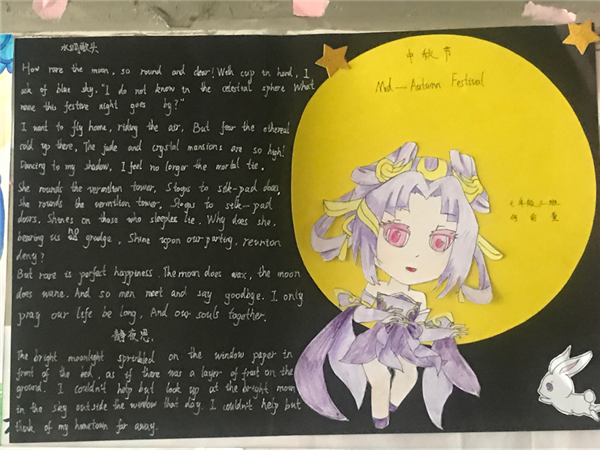 水调歌头
How rare the moon, so round and clear! With cup in hand, I
ask of blue sky, "I do not know in the celestial sphere What
name this festive night goes by?"
I want to fly home, riding the air, But fear the ethereal
cold up there, The jade and crystal mansions are so high!
Dancing to my shadow, I feel no longer the mortal tie.
She rounds the vermilion tower, Stoops to silk-pad doors,
She rounds the vermilion tower, Stoops to silk-pad
doors, Shines on those who sleepless lie. Why does she,
bearing us no grudge, Shine upon our parting, reunion
deny?
But rare is perfect happiness. The moon does wax, the moon
does wane. And so men meet and say goodbye. I only
pray our life be long, And our souls together.
静夜思
The bright moonlight sprinkled on the window paper in
front of the bed, as if there was a layer of frost on the
ground. I couldn't help but look up at the bright moon
in the sky outside the window that day. I couldn't help but
think of my hometown far away.
中秋节
Mid-Autumn Festival
七年级二班